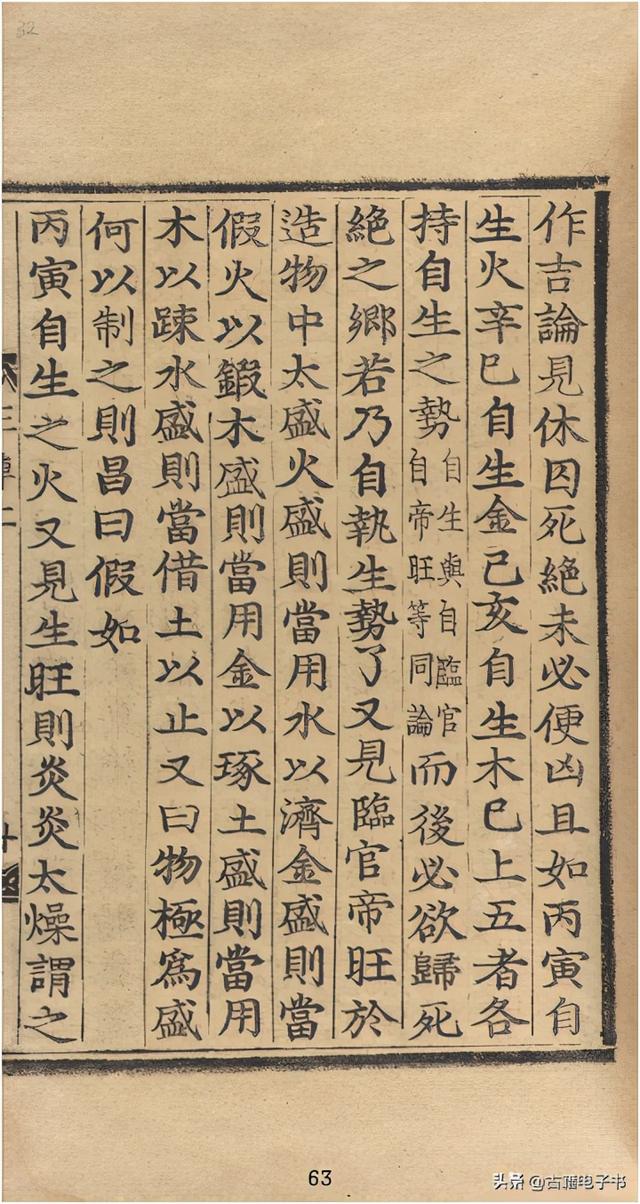 32
作吉論見休囚死絕未必便凶且如丙寅自
生火辛巳自生金己亥自生木巳上五者各
持自生之勢自生與自臨官自帝旺等同論而後必欲歸死
絕之鄉若乃自執生勢了又見臨官帝旺於
造物中太盛火盛則當用水以濟金盛則當
假火以鍛木盛則當用金以琢土盛則當用
木以踈水盛則當借土以止又曰物極爲盛
何以制之則昌曰假如
丙寅自生之火又見生旺則炎炎太燥謂之
63
头条 @古籍电子书